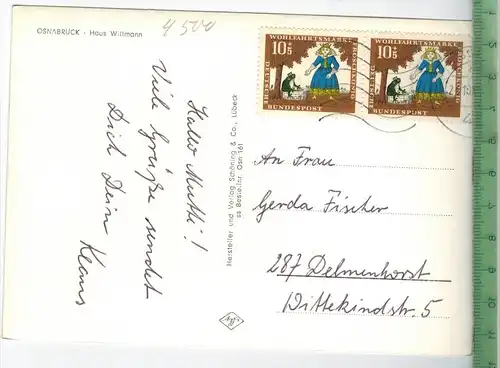 OSNABRÜCK · Haus Wittmann
4500
Hallo Mutti!
Viele Grüße sendet
Dich Dein Klaus
Hersteller und Verlag Schöning & Co., Lübeck
ss Bestellnr. Osn 161
10+5 WOHLFAHRTSMARKE
FROSCHKÖNIG
DEUTSCHE
BUNDESPOST
10+5 WOHLFAHRTSMARKE
FROSCHKÖNIG
DEUTSCHE
BUNDESPOST
An Frau
Gerda Fischer
287 Delmenhorst
Wittekindstr. 5